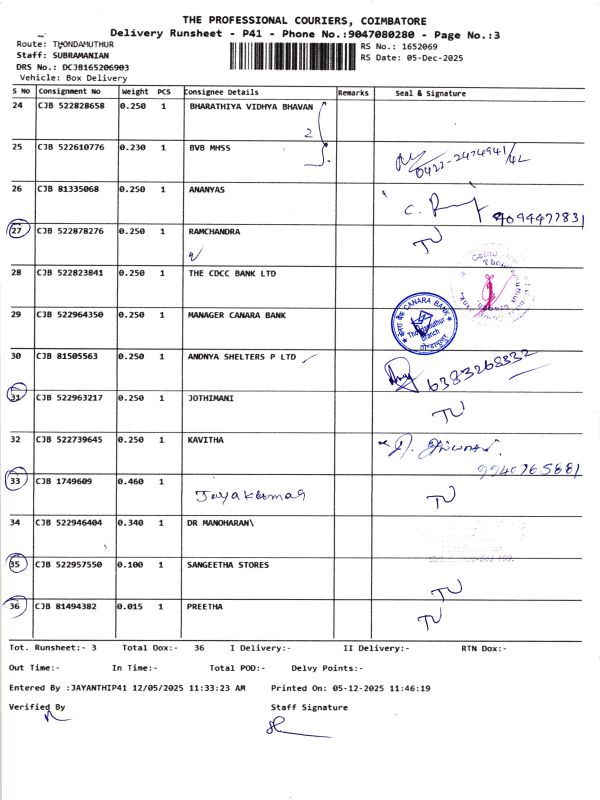 THE PROFESSIONAL COURIERS, COIMBATORE
Delivery Runsheet - P41 - Phone No.:9047080280 - Page No.:3
Route: THONDAMUTHUR
Staff: SUBRAMANIAN
DRS No.: DCJB165206903
Vehicle: Box Delivery
RS No.: 1652069
RS Date: 05-Dec-2025
S No Consignment No Weight PCS Consignee Details Remarks Seal & Signature
24 CJB 522828658 0.250 1 BHARATHIYA VIDHYA BHAVAN
2
25 CJB 522610776 0.230 1 BVB MHSS
0422-2474941/42
26 CJB 81335068 0.250 1 ANANYAS
9094477831
27 CJB 522878276 0.250 1 RAMCHANDRA
28 CJB 522823841 0.250 1 THE CDCC BANK LTD
29 CJB 522964350 0.250 1 MANAGER CANARA BANK
CANARA BANK
Thondamuthur
Branch
30 CJB 81505563 0.250 1 ANDNYA SHELTERS P LTD
6383268332
31 CJB 522963217 0.250 1 JOTHIMANI
32 CJB 522739645 0.250 1 KAVITHA
9940765881
33 CJB 1749609 0.460 1
Jayakumar
34 CJB 522946404 0.340 1 DR MANOHARAN\
35 CJB 522957550 0.100 1 SANGEETHA STORES
36 CJB 81494382 0.015 1 PREETHA
Tot. Runsheet:- 3 Total Dox:- 36 I Delivery:- II Delivery:- RTN Dox:-
Out Time:- In Time:- Total POD:- Delvy Points:-
Entered By :JAYANTHIP41 12/05/2025 11:33:23 AM Printed On: 05-12-2025 11:46:19
Verified By Staff Signature